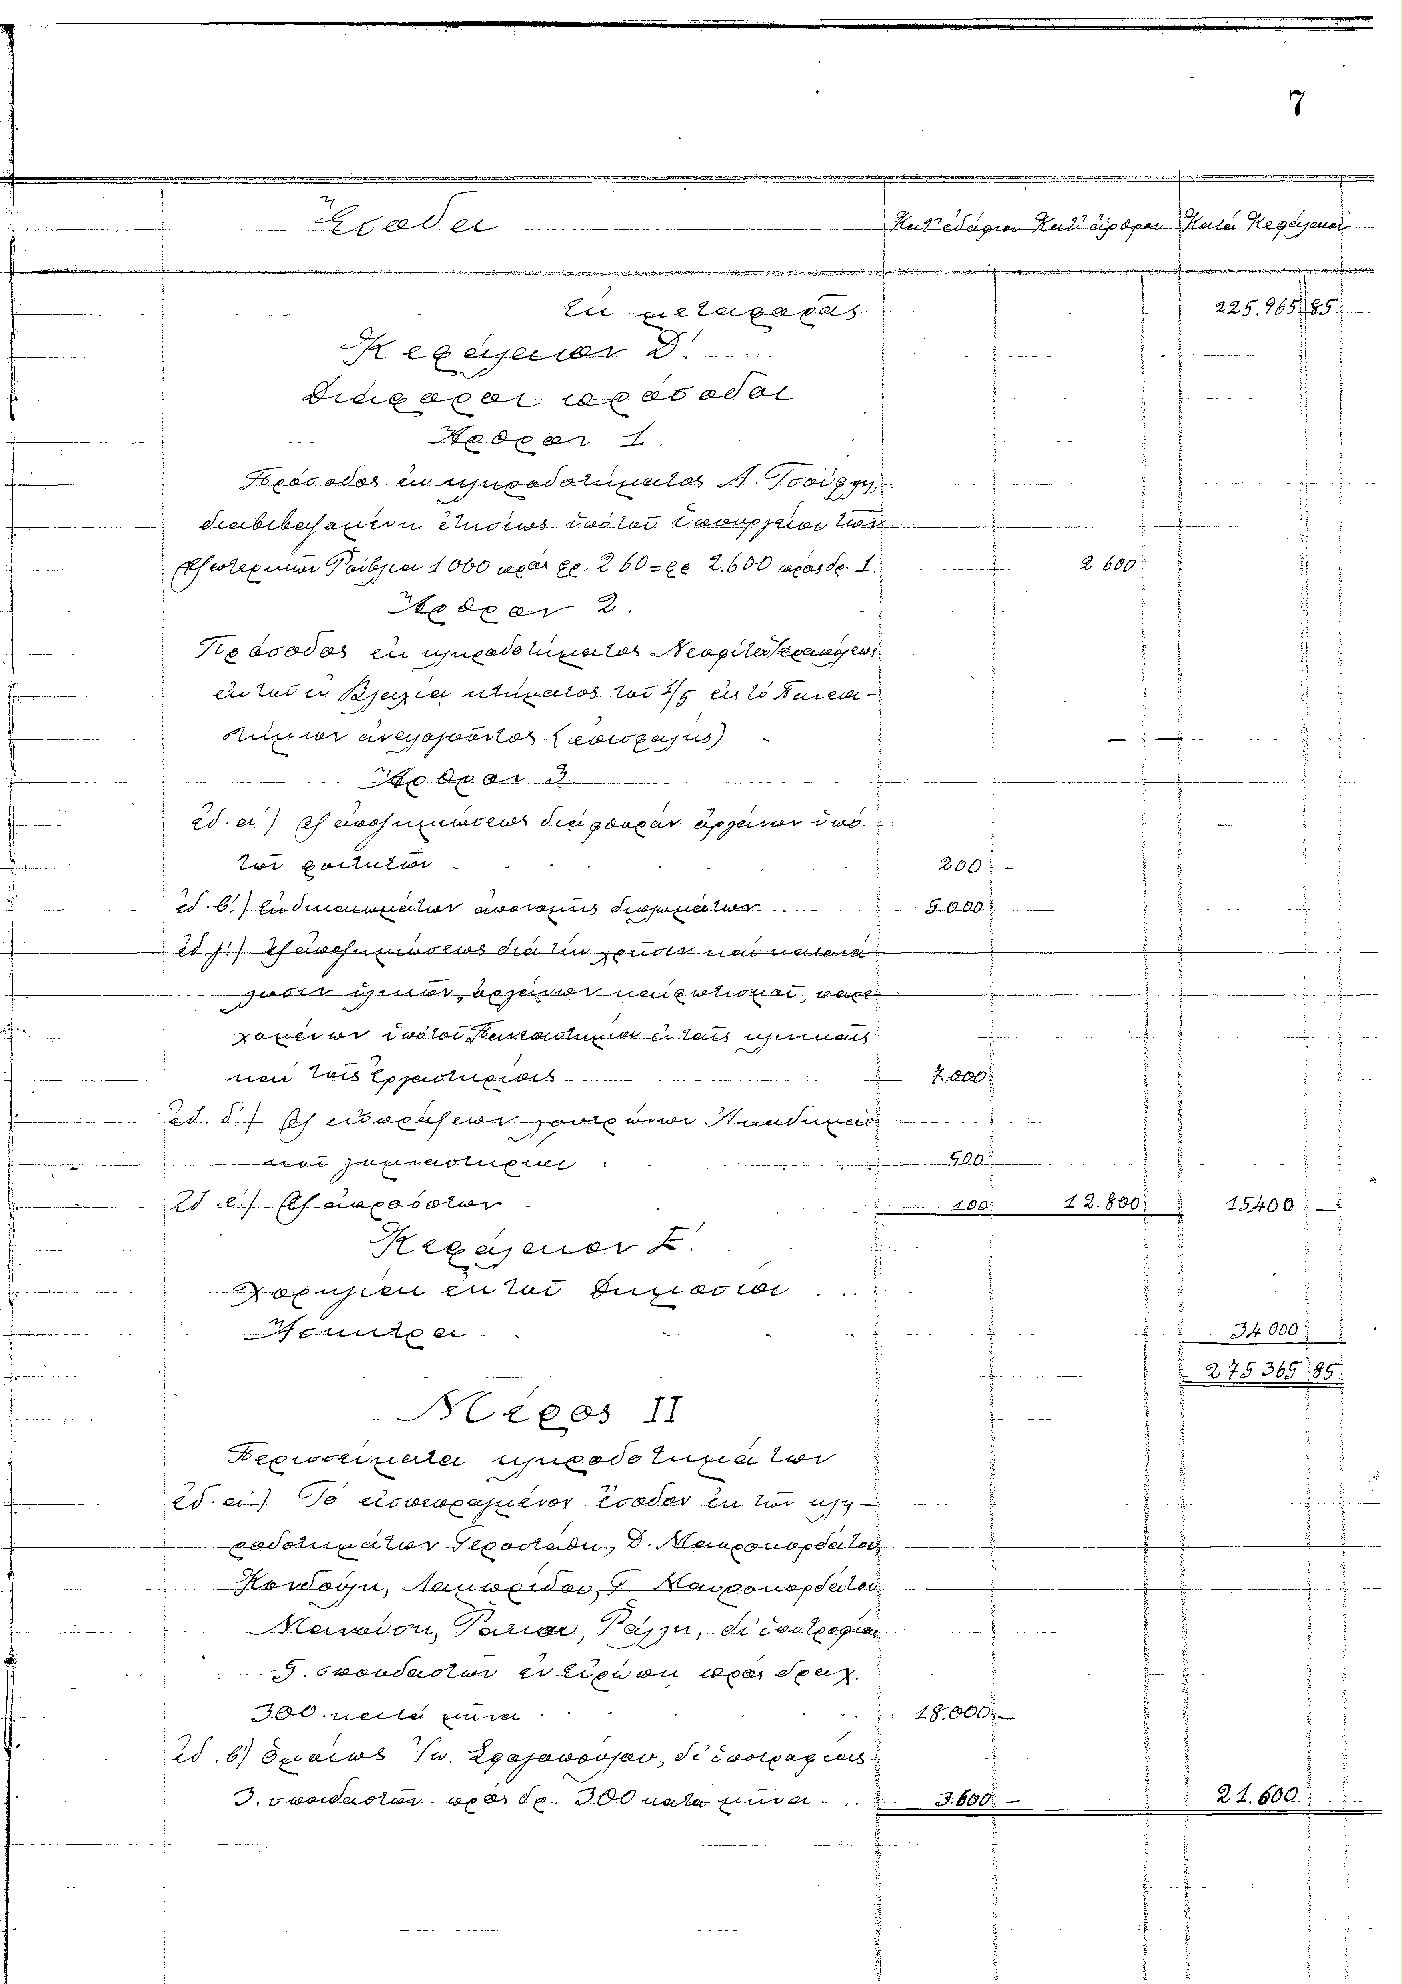 7
Ἔσοδα Κατ' ἐδάφιον Κατ' ἄρθρον Κατὰ Κεφάλαιον
ἐκ μεταφορᾶς 225.965 85
Κεφάλαιον Δ'.
Διάφοροι πρόσοδοι
Ἄρθρον 1.
Πρόσοδος ἐκ κληροδοτήματος Α.
διαβιβαζομένη ἐτησίως ὑπὸ τοῦ Ὑπουργείου τῶν
Ἐξωτερικῶν Ρούβλια 1000 πρὸς φρ. 2 60 = φρ 2.600 πρὸς δρ. 1. 2 600
Ἄρθρον 2.
Πρόσοδος ἐκ κληροδοτήματος
ἐκ τοῦ ἐν Βλαχίᾳ κτήματος τοῦ 1/5 εἰς τὸ Πανεπι-
στήμιον ἀναλογοῦντος — —
Ἄρθρον 3
ἐδ. α') Ἐξ ἀποζημιώσεως διὰ φθορὰν ὀργάνων ὑπὸ
τῶν φοιτητῶν 200 -
ἐδ. β'.) Ἐκ δικαιωμάτων ἀπονομῆς διπλωμάτων 5.000
ἐδ γ'.) Ἐξ ἀποζημιώσεως διὰ τὴν χρῆσιν καὶ κατανά
λωσιν ὑλικῶν, ὀργάνων καὶ φωτισμοῦ, παρε
χομένων ὑπὸ τοῦ Πανεπιστημίου ἐν ταῖς κλινικαῖς
καὶ τοῖς Ἐργαστηρίοις 7.000
ἐδ. δ'.) Ἐξ εἰσπράξεων λουτρώνων Ἀκαδημαϊ
κοῦ γυμναστηρίου 500
ἐδ. ε') Ἐξ ἀπροόπτων 100 12.800 15400 —
Κεφάλαιον Ε'.
Χορηγία ἐκ τοῦ Δημοσίου
34 000
275 365 85
Μέρος II
Περισσεύματα κληροδοτημάτων
ἐδ. α') Τὸ εἰσπραχθησόμενον ἔσοδον ἐκ τῶν κλη-
ροδοτημάτων Γεροστάθη, Δ. Μαυροκορδάτου,
Κονδούλη, Γ Μαυροκορδάτου
Μανούση, Ράλλη, δι' ὑποτροφίαν
5. σπουδαστῶν ἐν Εὐρώπῃ πρὸς δραχ.
300 κατὰ μῆνα 18.000 —
ἐδ. β) ὁμοίως δι' ὑποτροφίας
3. σπουδαστῶν πρὸς δρ. 300 κατὰ μῆνα 3.600 — 21.600